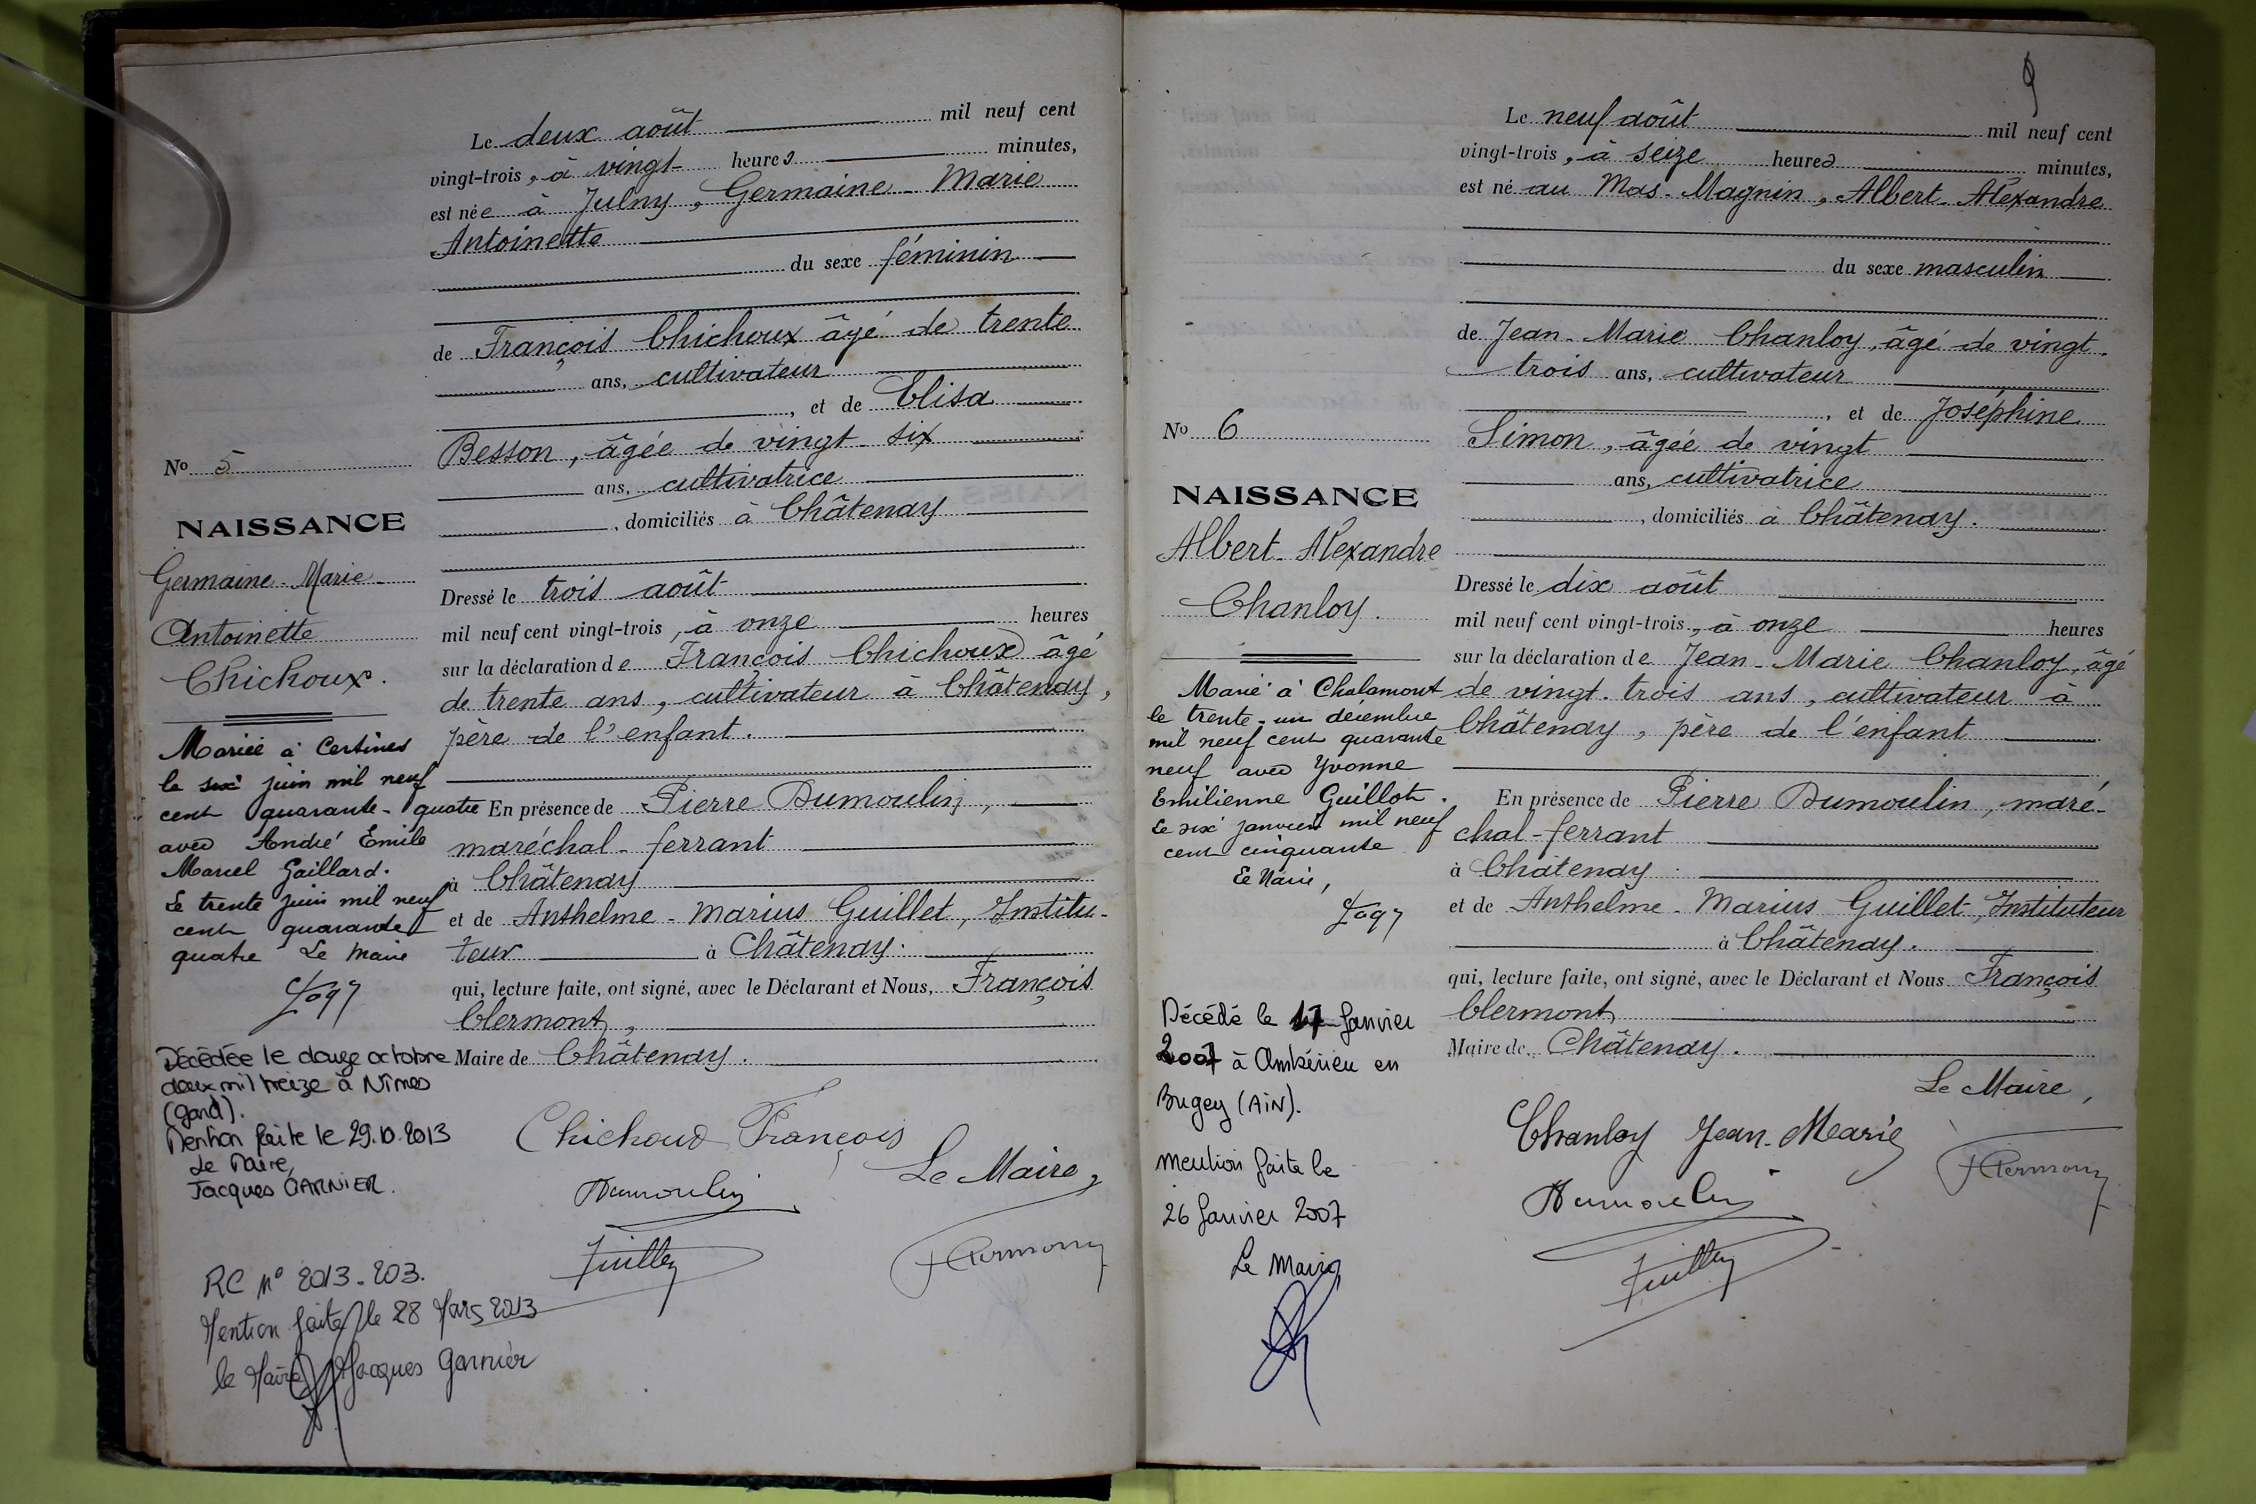 Le deux août mil neuf cent
vingt-trois, à vingt heures minutes,
est née à Julny, Germaine-Marie
Antoinette
du sexe féminin
de François Chichoux âgé de trente
ans, cultivateur
, et de Elisa
Besson, âgée de vingt-six
ans, cultivatrice
, domiciliés à Châtenay
Dressé le trois août
mil neuf cent vingt-trois, à onze heures
sur la déclaration de François Chichoux âgé
de trente ans, cultivateur à Châtenay,
père de l'enfant.
En présence de Pierre Dumoulin,
maréchal-ferrant
à Châtenay
et de Anthelme-Marius Guillet, Institu-
teur à Châtenay.
qui, lecture faite, ont signé, avec le Déclarant et Nous, François
Clermont,
Maire de Châtenay.
Chichoux François
Le Maire,
Dumoulin
Guillet
F Clermont
No 5
NAISSANCE
Germaine-Marie
Antoinette
Chichoux.
Mariée à Certines
le six juin mil neuf
cent quarante-quatre
avec André Emile
Marcel Gaillard.
Le trente juin mil neuf
cent quarante
quatre Le Maire
Décédée le douze octobre
deux mil treize à Nîmes
(Gard).
Mention faite le 29.10.2013
Le Maire,
Jacques GARNIER.
RC n° 2013-203.
Mention faite le 28 Mars 2013
le Maire Jacques Garnier
9
Le neuf août mil neuf cent
vingt-trois, à seize heures minutes,
est né au Mas-Magnin, Albert-Alexandre
du sexe masculin
de Jean-Marie Chanloy, âgé de vingt-
trois ans, cultivateur
, et de Joséphine
Simon, âgée de vingt
ans, cultivatrice
, domiciliés à Châtenay.
Dressé le dix août
mil neuf cent vingt-trois, à onze heures
sur la déclaration de Jean-Marie Chanloy, âgé
de vingt-trois ans, cultivateur à
Châtenay, père de l'enfant
En présence de Pierre Dumoulin, maré-
chal-ferrant
à Châtenay
et de Anthelme-Marius Guillet, Instituteur
à Châtenay.
qui, lecture faite, ont signé, avec le Déclarant et Nous François
Clermont
Maire de Châtenay.
Le Maire,
Chanloy Jean-Marie
F Clermont
Dumoulin
Guillet
No 6
NAISSANCE
Albert-Alexandre
Chanloy.
Marié à Chalamont
le trente-un décembre
mil neuf cent quarante
neuf avec Yvonne
Emilienne Guillot.
Le six janvier mil neuf
cent cinquante
Le Maire,
Décédé le 17 Janvier
2007 à Ambérieu en
Bugey (AIN).
mention faite le
26 Janvier 2007
Le Maire